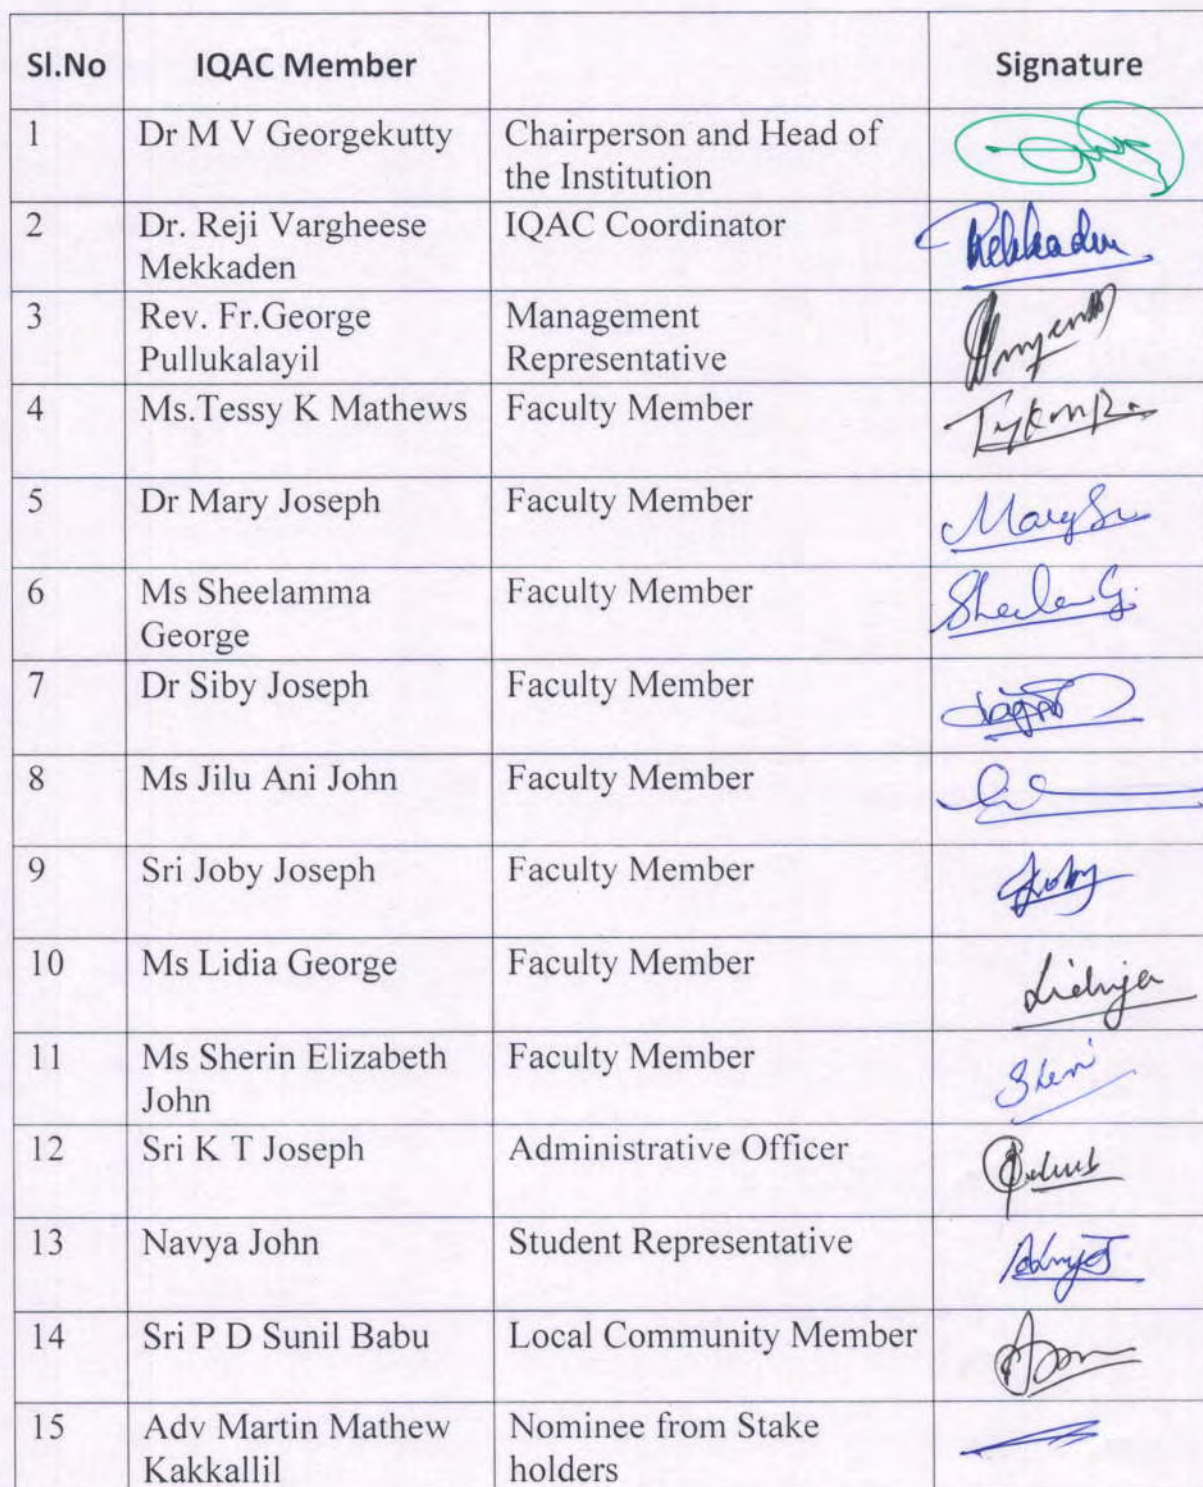 Sl.No IQAC Member Signature
1 Dr M V Georgekutty Chairperson and Head of
the Institution
2 Dr. Reji Vargheese IQAC Coordinator
Mekkaden Mekkaden
3 Rev. Fr.George Management
Pullukalayil Representative
4 Ms.Tessy K Mathews Faculty Member
5 Dr Mary Joseph Faculty Member
6 Ms Sheelamma Faculty Member
George
7 Dr Siby Joseph Faculty Member
8 Ms Jilu Ani John Faculty Member
9 Sri Joby Joseph Faculty Member Joby
10 Ms Lidia George Faculty Member
11 Ms Sherin Elizabeth Faculty Member
John
12 Sri K T Joseph Administrative Officer
13 Navya John Student Representative
14 Sri P D Sunil Babu Local Community Member
15 Adv Martin Mathew Nominee from Stake
Kakkallil holders